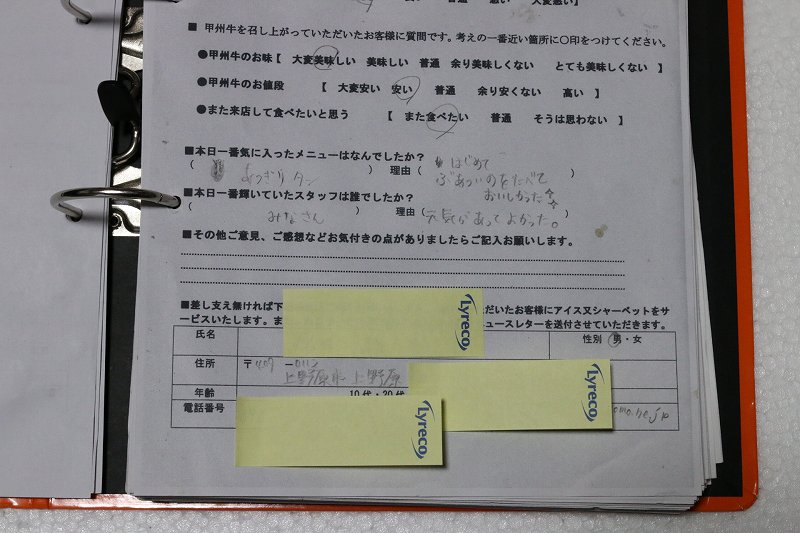 ■ 甲州牛を召し上がっていただいたお客様に質問です。考えの一番近い箇所に〇印をつけてください。
●甲州牛のお味【 大変美味しい 美味しい 普通 余り美味しくない とても美味しくない 】
●甲州牛のお値段 【 大変安い 安い 普通 余り安くない 高い 】
●また来店して食べたいと思う 【 また食べたい 普通 そうは思わない 】
■本日一番気に入ったメニューはなんでしたか?
( あつぎりタン ) 理由( はじめて
ぶあついのをたべて
おいしかった )
■本日一番輝いていたスタッフは誰でしたか?
( みなさん ) 理由( 元気があってよかった。 )
■その他ご意見、ご感想などお気付きの点がありましたらご記入お願いします。
■差し支え無ければ下 だいたお客様にアイス又シャーベットをサ
ービスいたします。ま ュースレターを送付させていただきます。
氏名 性別 男・女
住所 〒
上野原市 上野原
年齢 10代・20代
電話番号 ne.jp
Lyreco
Lyreco
Lyreco